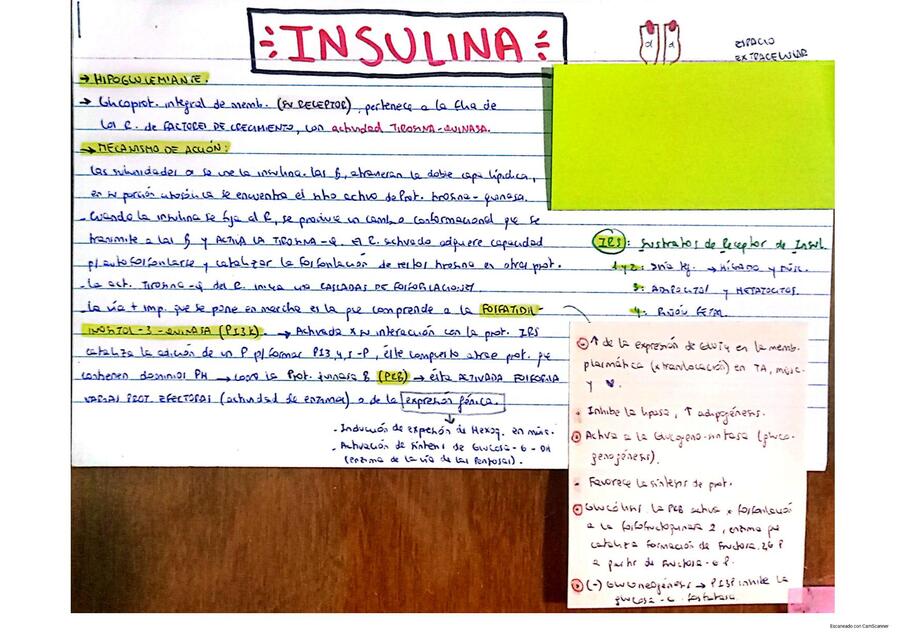 INSULINA
α α
ESPACIO
EXTRACELULAR
→ HIPOGLUCEMIANTE.
→ Glucoprot. integral de memb. (SU RECEPTOR), pertenece a la flia de
los R. de FACTORES DE CRECIMIENTO, con actividad TIROSINA-QUINASA.
→ MECANISMO DE ACCIÓN:
Las subunidades α se une la insulina. Las β, atraviesan la doble capa lipídica,
en su porción citosólica se encuentra el sitio activo de Prot. tirosina-quinasa.
- Cuando la insulina se fija al R, se produce un cambio conformacional que se
transmite a las β y ACTIVA LA TIROSINA-Q. El R. activado adquiere capacidad
p/ autofosforilarse y catalizar la fosforilación de restos tirosina en otras prot.
- La act. TIROSINA-Q del R. inicia una CASCADAS DE FOSFORILACIONES.
- La vía + imp. que se pone en marcha es la que comprende a la FOSFATIDIL-
INOSITOL-3-QUINASA (PI3K). → Activada x su interacción con la prot. IRS
cataliza la adición de un P p/ formar PI3,4,5-P, éste compuesto atrae prot. que
contienen dominios PH → como la Prot. quinasa B (PKB) → ésta ACTIVADA FOSFORILA
VARIAS PROT. EFECTORAS (actividad de enzimas) o de la expresión génica.
- Inducción de expresión de Hexoq. en músc.
- Activación de síntesis de Glucosa-6-DH
(enzima de la vía de las Pentosas).
IRS: Sustratos de Receptor de Insul.
1 y 2: → HÍGADO y MÚSC.
3: ADIPOCITOS y HEPATOCITOS.
4: RIÑÓN FETAL.
↑ de la expresión de GLUT4 en la memb.
plasmática (x translocación) en TA, músc.
y
- Inhibe la lipasa, ↑ adipogénesis.
Activa a la Glucógeno-sintasa (gluco-
genogénesis).
- Favorece la síntesis de prot.
GLUCÓLISIS. La PKB activa x fosforilación
a la fosfofructoquinasa 2, enzima que
cataliza formación de fructosa 2,6 P
a partir de fructosa-6P.
(-) Gluconeogénesis → inhibe la
glucosa-6-fosfatasa.
Escaneado con CamScanner